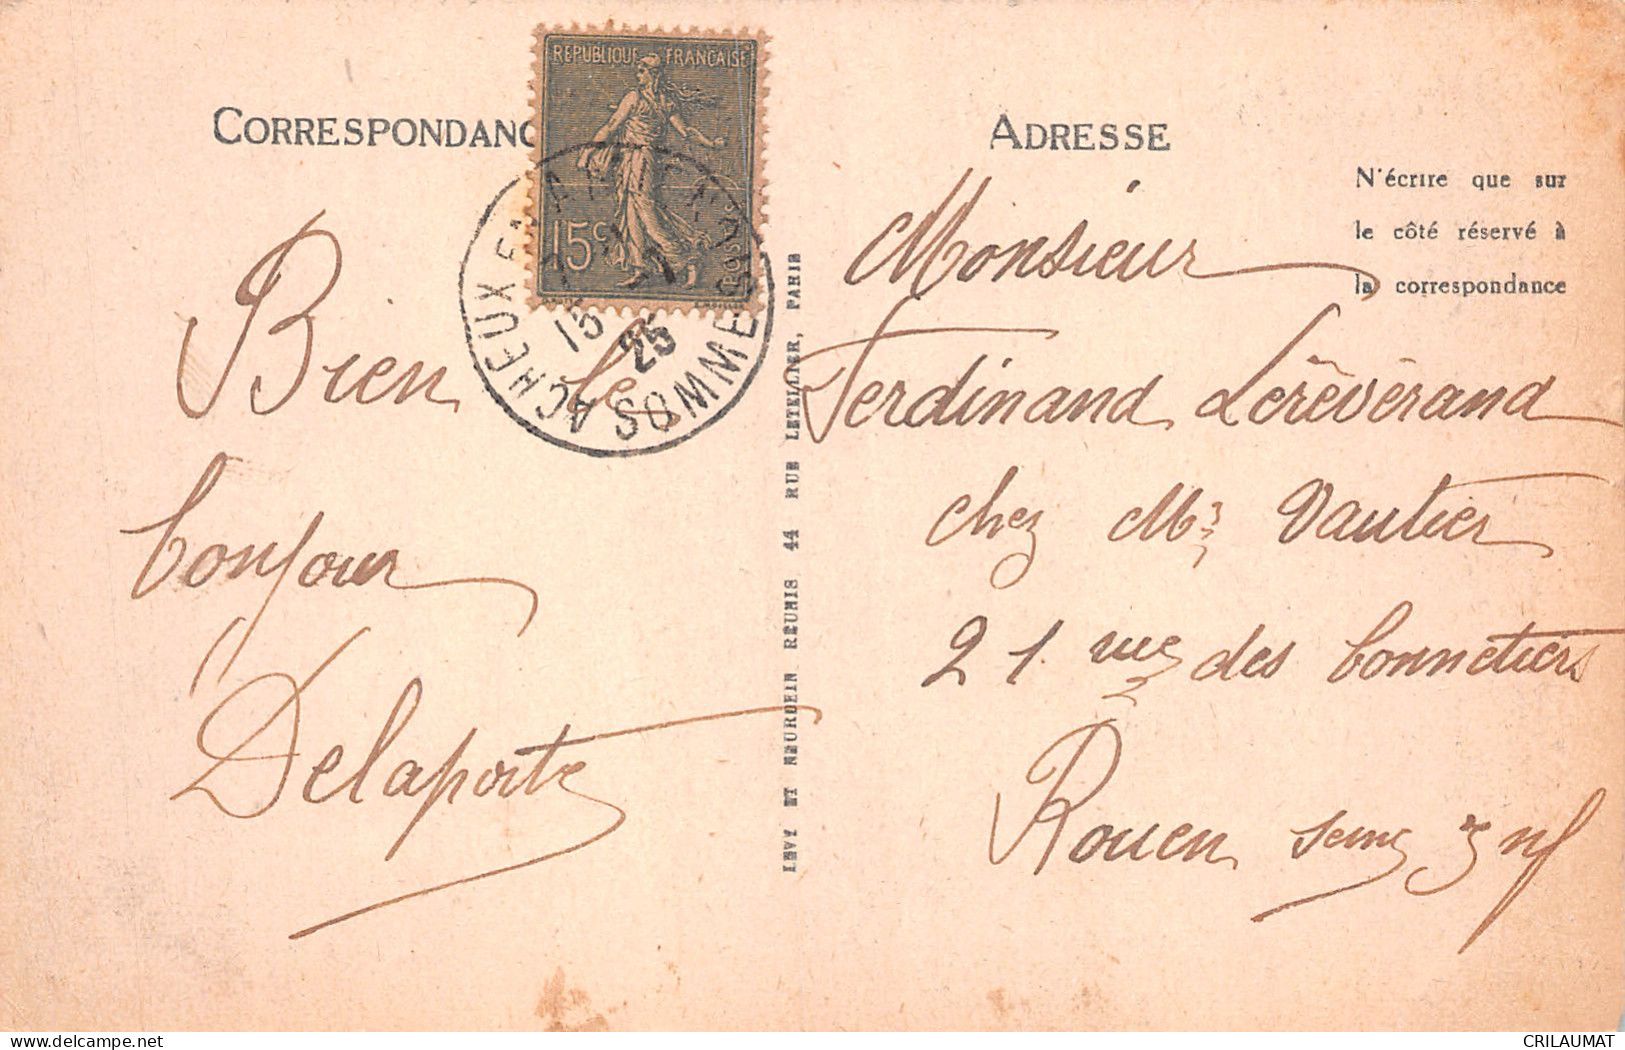 CORRESPONDANC
RÉPUBLIQUE FRANÇAISE
15c
POSTES
ACHEUX EN AMIENOIS
15
25
SOMME
Bien le
bonjour
Delaporte
LEVY ET NEURDEIN RÉUNIS 44 RUE LETELLIER, PARIS
ADRESSE
N'écrire que sur
le côté réservé à
la correspondance
Monsieur
Ferdinand Lérévérand
chez Mr Vautier
21 rue des bonnetiers
Rouen Seine inf
CRILAUMAT